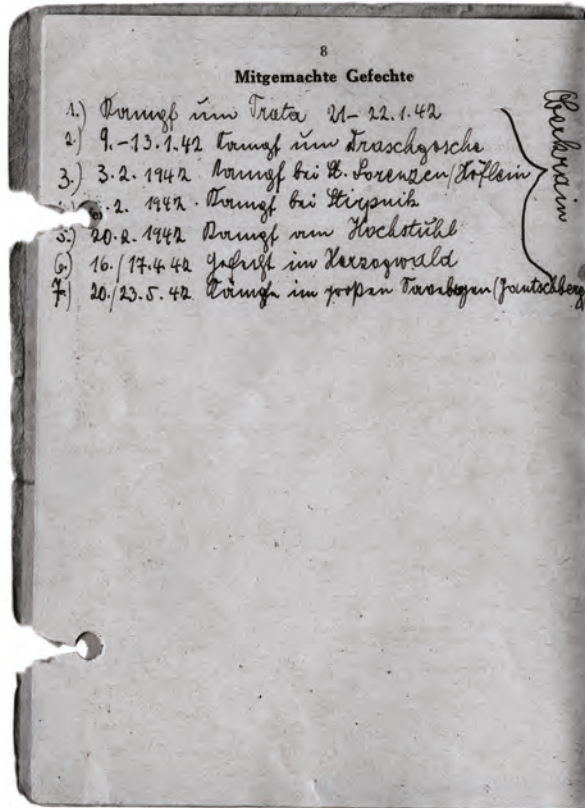 8
Mitgemachte Gefechte
1.) Kampf um Trata 21-22.1.42
2.) 9.-13.1.42 Kampf um Draschgosche
3.) 3.2.1942 Kampf bei St. Lorenzen/Höflein
.2. 1942. Kampf bei Stirpnik
5.) 20.2.1942 Kampf am Hochstuhl
6.) 16./17.4.42 Gefecht im Herzogwald
7.) 20./23.5.42 Kämpfe im großen Savebogen (Jantschberg
Oberkrain